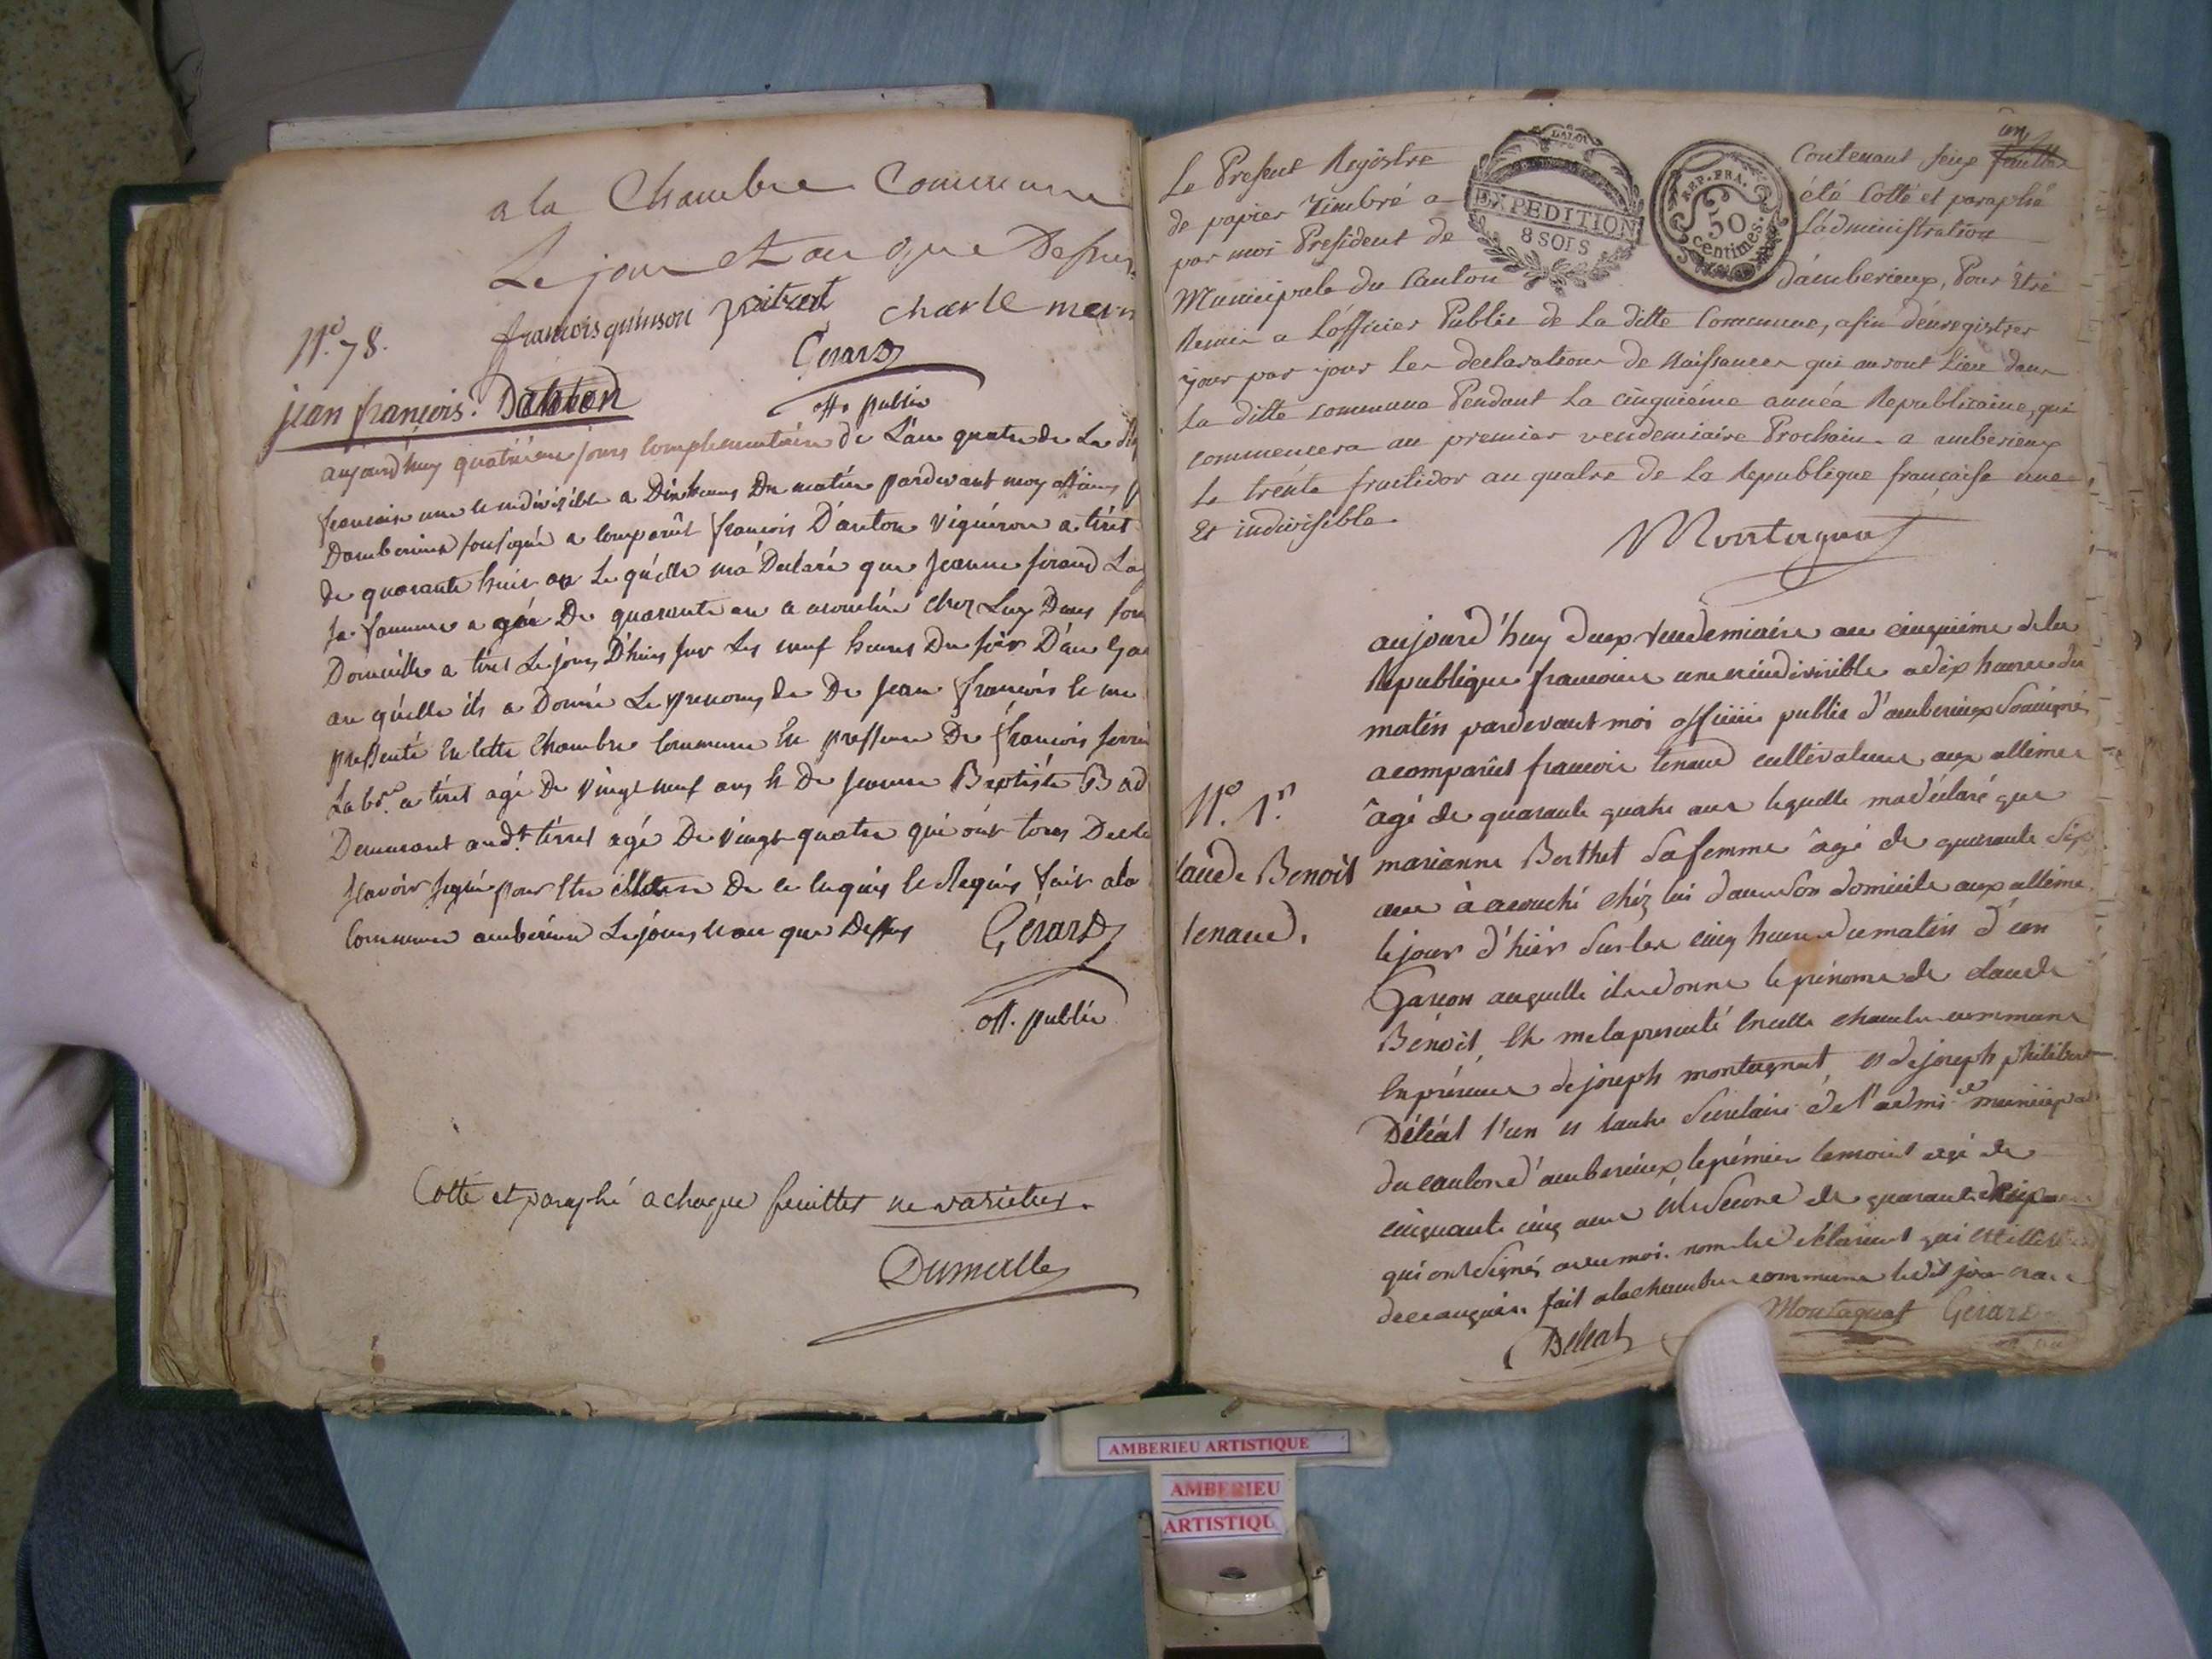 a la Chambre Commune
Le jour et an que Dessus
françois quinson
charle
Gerard
off. public
N.º 78.
jean françois. Danton
aujourd'huy quatrieme jours complementaire de L'an quatre de La
francaise une le indivisible a Dix heures Du matin pardevant moy
Damberieux sousigné a comparût françois D'anton Vigneron a tiret
de quarante huis an Le quelle ma Declaré que jeanne
sa famme agée De quarante an a acouchée chez Luy Dans son
Domicille a tiret Le jours D'hiers sur Les neuf heures Du soir D'un
au quelle ils a Donné Le prenoms de De jean françois
pressenté en cette Chambre Commune En pressence De françois
Lab.r a tiret agé De vingt neuf ans & De jeanne Baptiste
Demeurant aud.t tiret agé De vingt quatre qui ont tous
scavoir signé pour De ce requis le Requis fait a la
Commune amberieux Le jours an que Dessus
Gérard
off. public
Cotté et paraphé a chaque feuillet ne varietur.
Dumalle
Le Present Registre
de papier Timbré a
par moi President de
Municipale du Canton
EXPEDITION
8 SOLS
REP. FRA.
50
centimes.
Contenant seize
un
été Cotté et paraphé
L'administration
d'amberieux, Pour Etre
Remis a L'officier Public de La ditte Commune, afin d'enregistrer
jour par jour les declarations de Naissances qui auront Lieu dans
La ditte commune Pendant La cinquiéme année Republicaine, qui
commencera au premier vendemiaire Prochain. a amberieux
Le trente fructidor an quatre de La Republique française une
Et indivisible.
Montagnat
aujourd'huy deux vendemiaire an cinquieme de la
République francoise une indivisible a dix heures du
matin pardevant moi officiie public d'amberieux Sousigné
a comparût francois tenand cultivateur aux allimes
âgé de quarante quatre ans lequelle ma déclaré que
N.º 1.er
Claude Benoit
tenand.
marianne Berthet sa femme âgé de quarante
ans à acouché chéz lui dans son domicile aux allimes
le jour d'hiér sur les cinq heures du matin d'un
Garçon auquelle il a donné le prénoms de claude
Bénoit, et me la presenté en cette chambre commune
en présence de joseph montagnat, et de joseph philibert
Déléat l'un et l'autre Secretaire de l'admi.on municipal
du canton d'amberieux, le prémier temoint agé de
cinquante cinq ans et le Second de quarante
qui ont Signés avec moi.
de ce auquis. fait a la chambre commune le dit jour
Déléat
Montagnat
Gérard
AMBERIEU ARTISTIQUE
AMBERIEU
ARTISTIQU